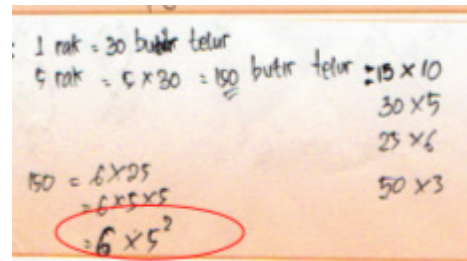 : 1 rak = 30 butir telur
5 rak = 5 x 30 = 150 butir telur = 15 x 10
30 x 5
25 x 6
50 x 3
150 = 6 x 25
= 6 x 5 x 5
= 6 x 5²